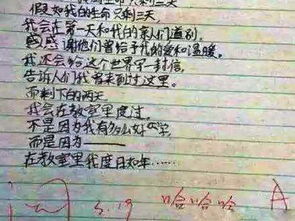 假如我的生命只剩三天
假如我的生命只剩三天，
我会在第一天和我的亲人们道别，
感谢他们曾给予我的爱和温暖。
我还会给这个世界写一封信，
告诉人们我曾来到过这里。
而剩下的两天，
我会在教室里度过，
不是因为我有多么好学，
而是因为——
在教室里我度日如年……
5.19 哈哈哈 A